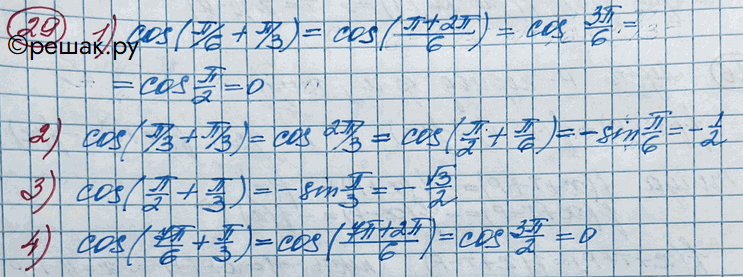 29 1) cos(π/6 + π/3) = cos((π+2π)/6) = cos 3π/6 =
©решак.ру
= cos π/2 = 0
2) cos(π/3 + π/3) = cos 2π/3 = cos(π/2 + π/6) = -sin π/6 = -1/2
3) cos(π/2 + π/3) = -sin π/3 = -√3/2
4) cos(7π/6 + π/3) = cos((7π+2π)/6) = cos 3π/2 = 0